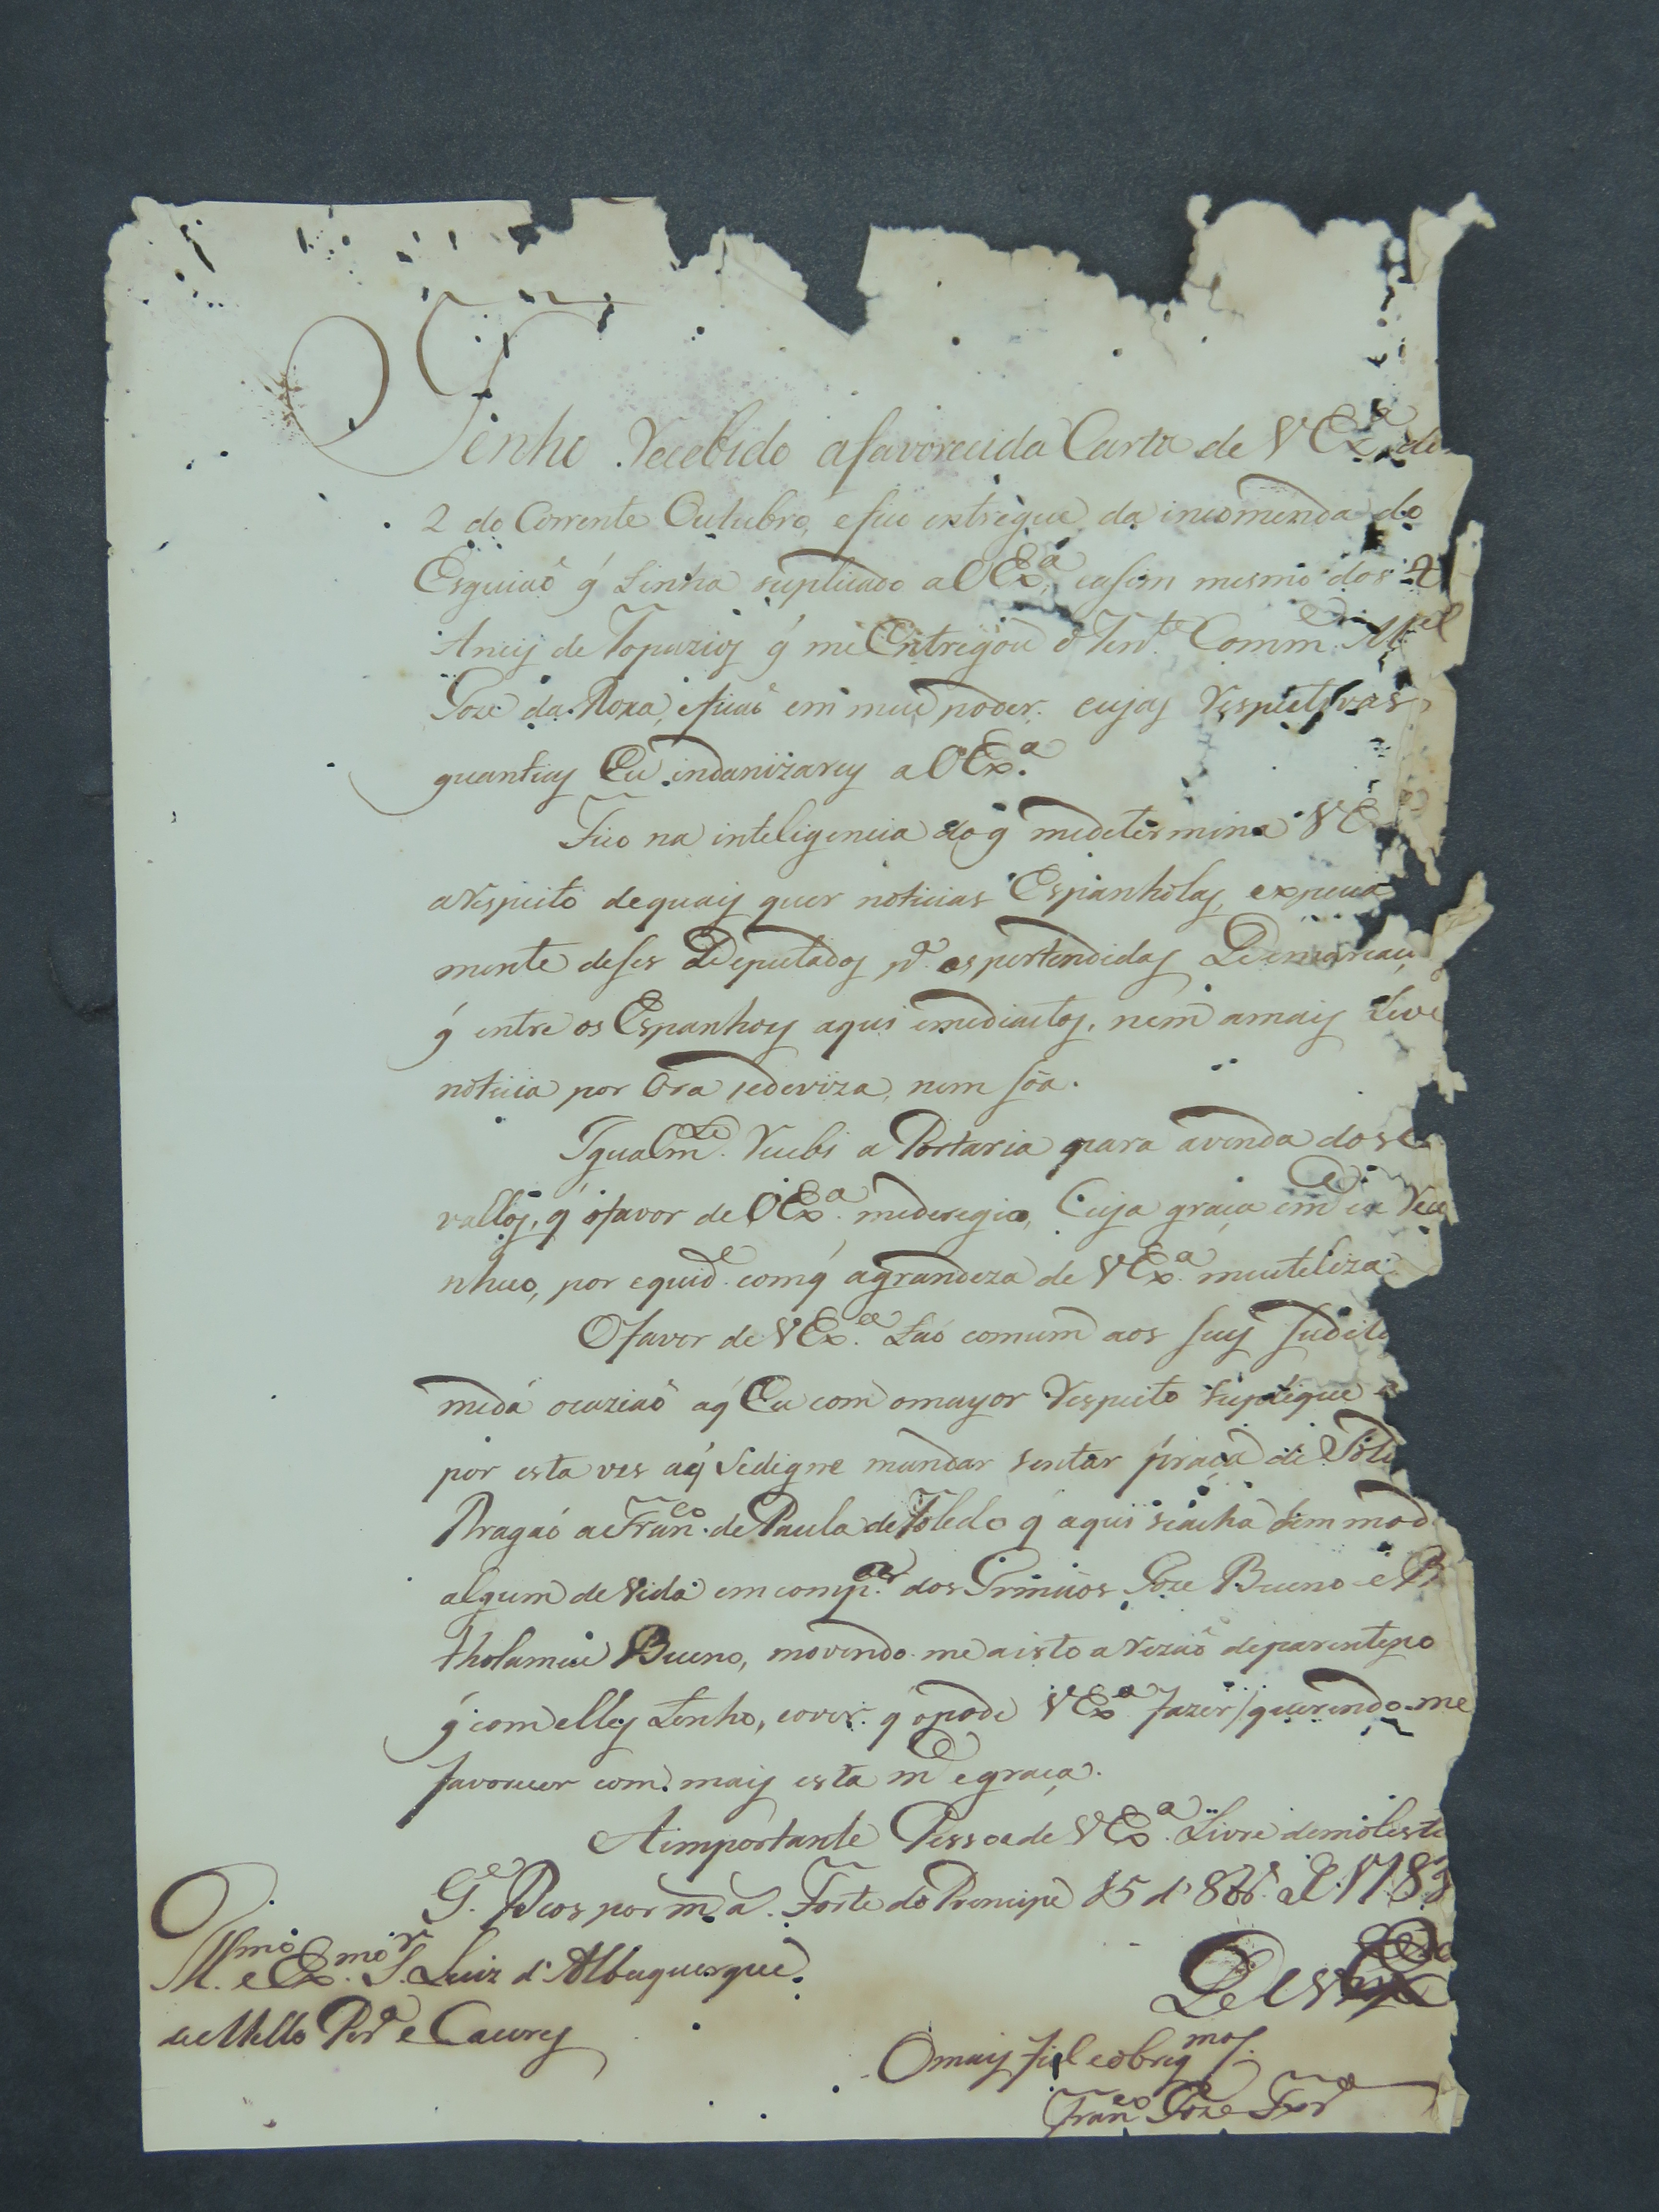 Tenho Recebido afavorecida Carta de VExª de
2 do Corrente Outubro, efico entregue da incomenda do
Esguiaõ q̃ tinha suplicado a VExª, easim mesmo dos 2
Aneis de Topazios q̃ me Entregou o Tenᵗᵉ Commᵉ Mᵉˡ
Joze da Roxa, eficaõ em meu poder. cujas Respectivas
quantias Eu indanizarey a VExª.
Fico na inteligencia doq̃ medetermina VE
aRespeito dequais quer noticias Espanholas, expecia
mente deses Deputados pª as pertendidas Demarcaç
q̃ entre os Espanhois aqui imediactos, nem amais Leve
noticia por Ora sedeviza, nem sôa.
Igualmᵗᵉ Recebi a Portaria para avenda dos
vallos, q̃ ofavor de VExª mederegio, Cuja graça em Reco
nheço, por equidᵉ comq̃ agrandeza de VExª meuteliza.
Ofavor de VExª taõ comum aos seus Sudito
medá ocaziaõ aq̃ Eu com omayor Respeito suplique
por esta ves aq̃ Sedigne mandar sentar praça de Sold
Dragaõ a Franᶜᵒ de Paula de Toledo q̃ aqui seacha sem mod
algum de vida em compª dos Primios Joze Bueno e B
tholameu Bueno, movendo-me aisto aRezaõ deparentesco
q̃ com elles tenho, eover q̃ opode VExª fazer/querendo-me
favorecer com mais esta mᶜᵉ egraça.
Aimportante Pessoa de VExª Livre demolesti
Gᵉ Deos por m. a. Forte do Principe 15 d' 8bʳᵒ d 1783
Illᵐᵒ e Exᵐᵒ Sʳ Luiz d' Albuquerque
de Mello Perª e Caceres
De VExª
Omais fiel eobrigᵐᵒ S.
Franᶜᵒ Joze Txrª